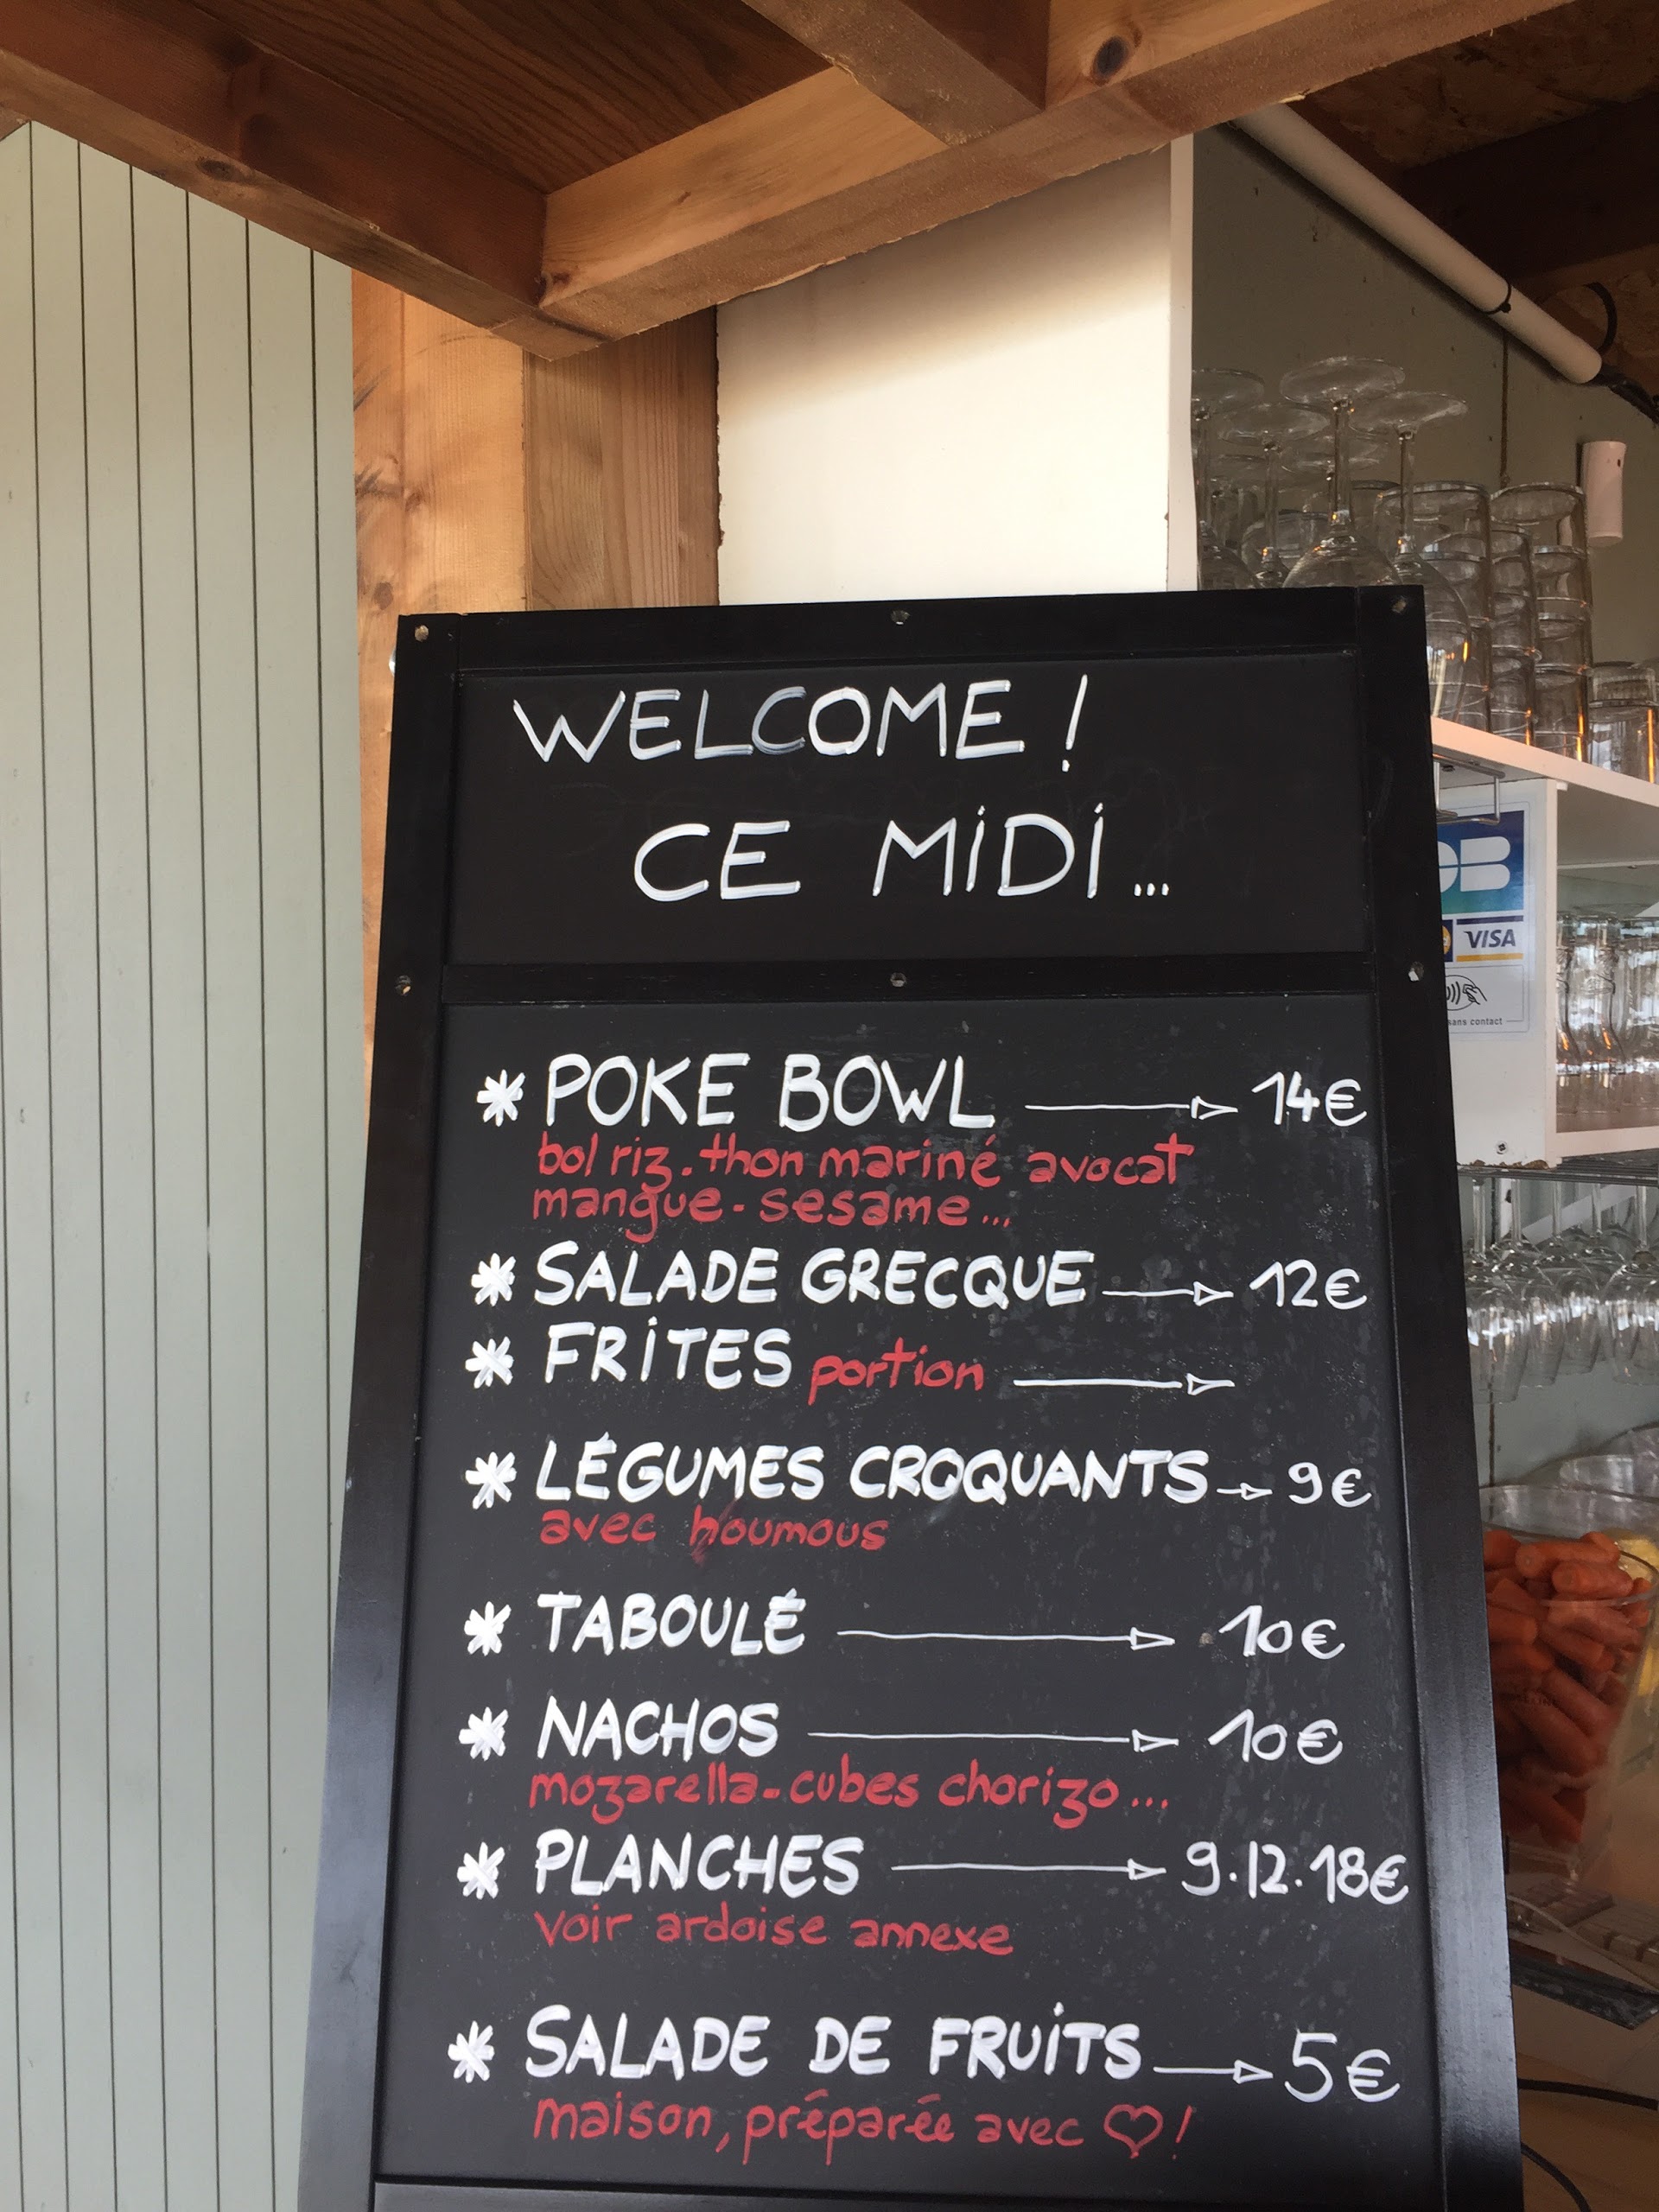 WELCOME !
CE MIDI...
* POKE BOWL → 14€
bol riz.thon mariné avocat
mangue-sesame...
* SALADE GRECQUE → 12€
* FRITES portion →
* LÉGUMES CROQUANTS → 9€
avec houmous
* TABOULÉ → 10€
* NACHOS → 10€
mozarella-cubes chorizo...
* PLANCHES → 9.12.18€
voir ardoise annexe
* SALADE DE FRUITS → 5€
maison, préparée avec ♡!
VISA
sans contact